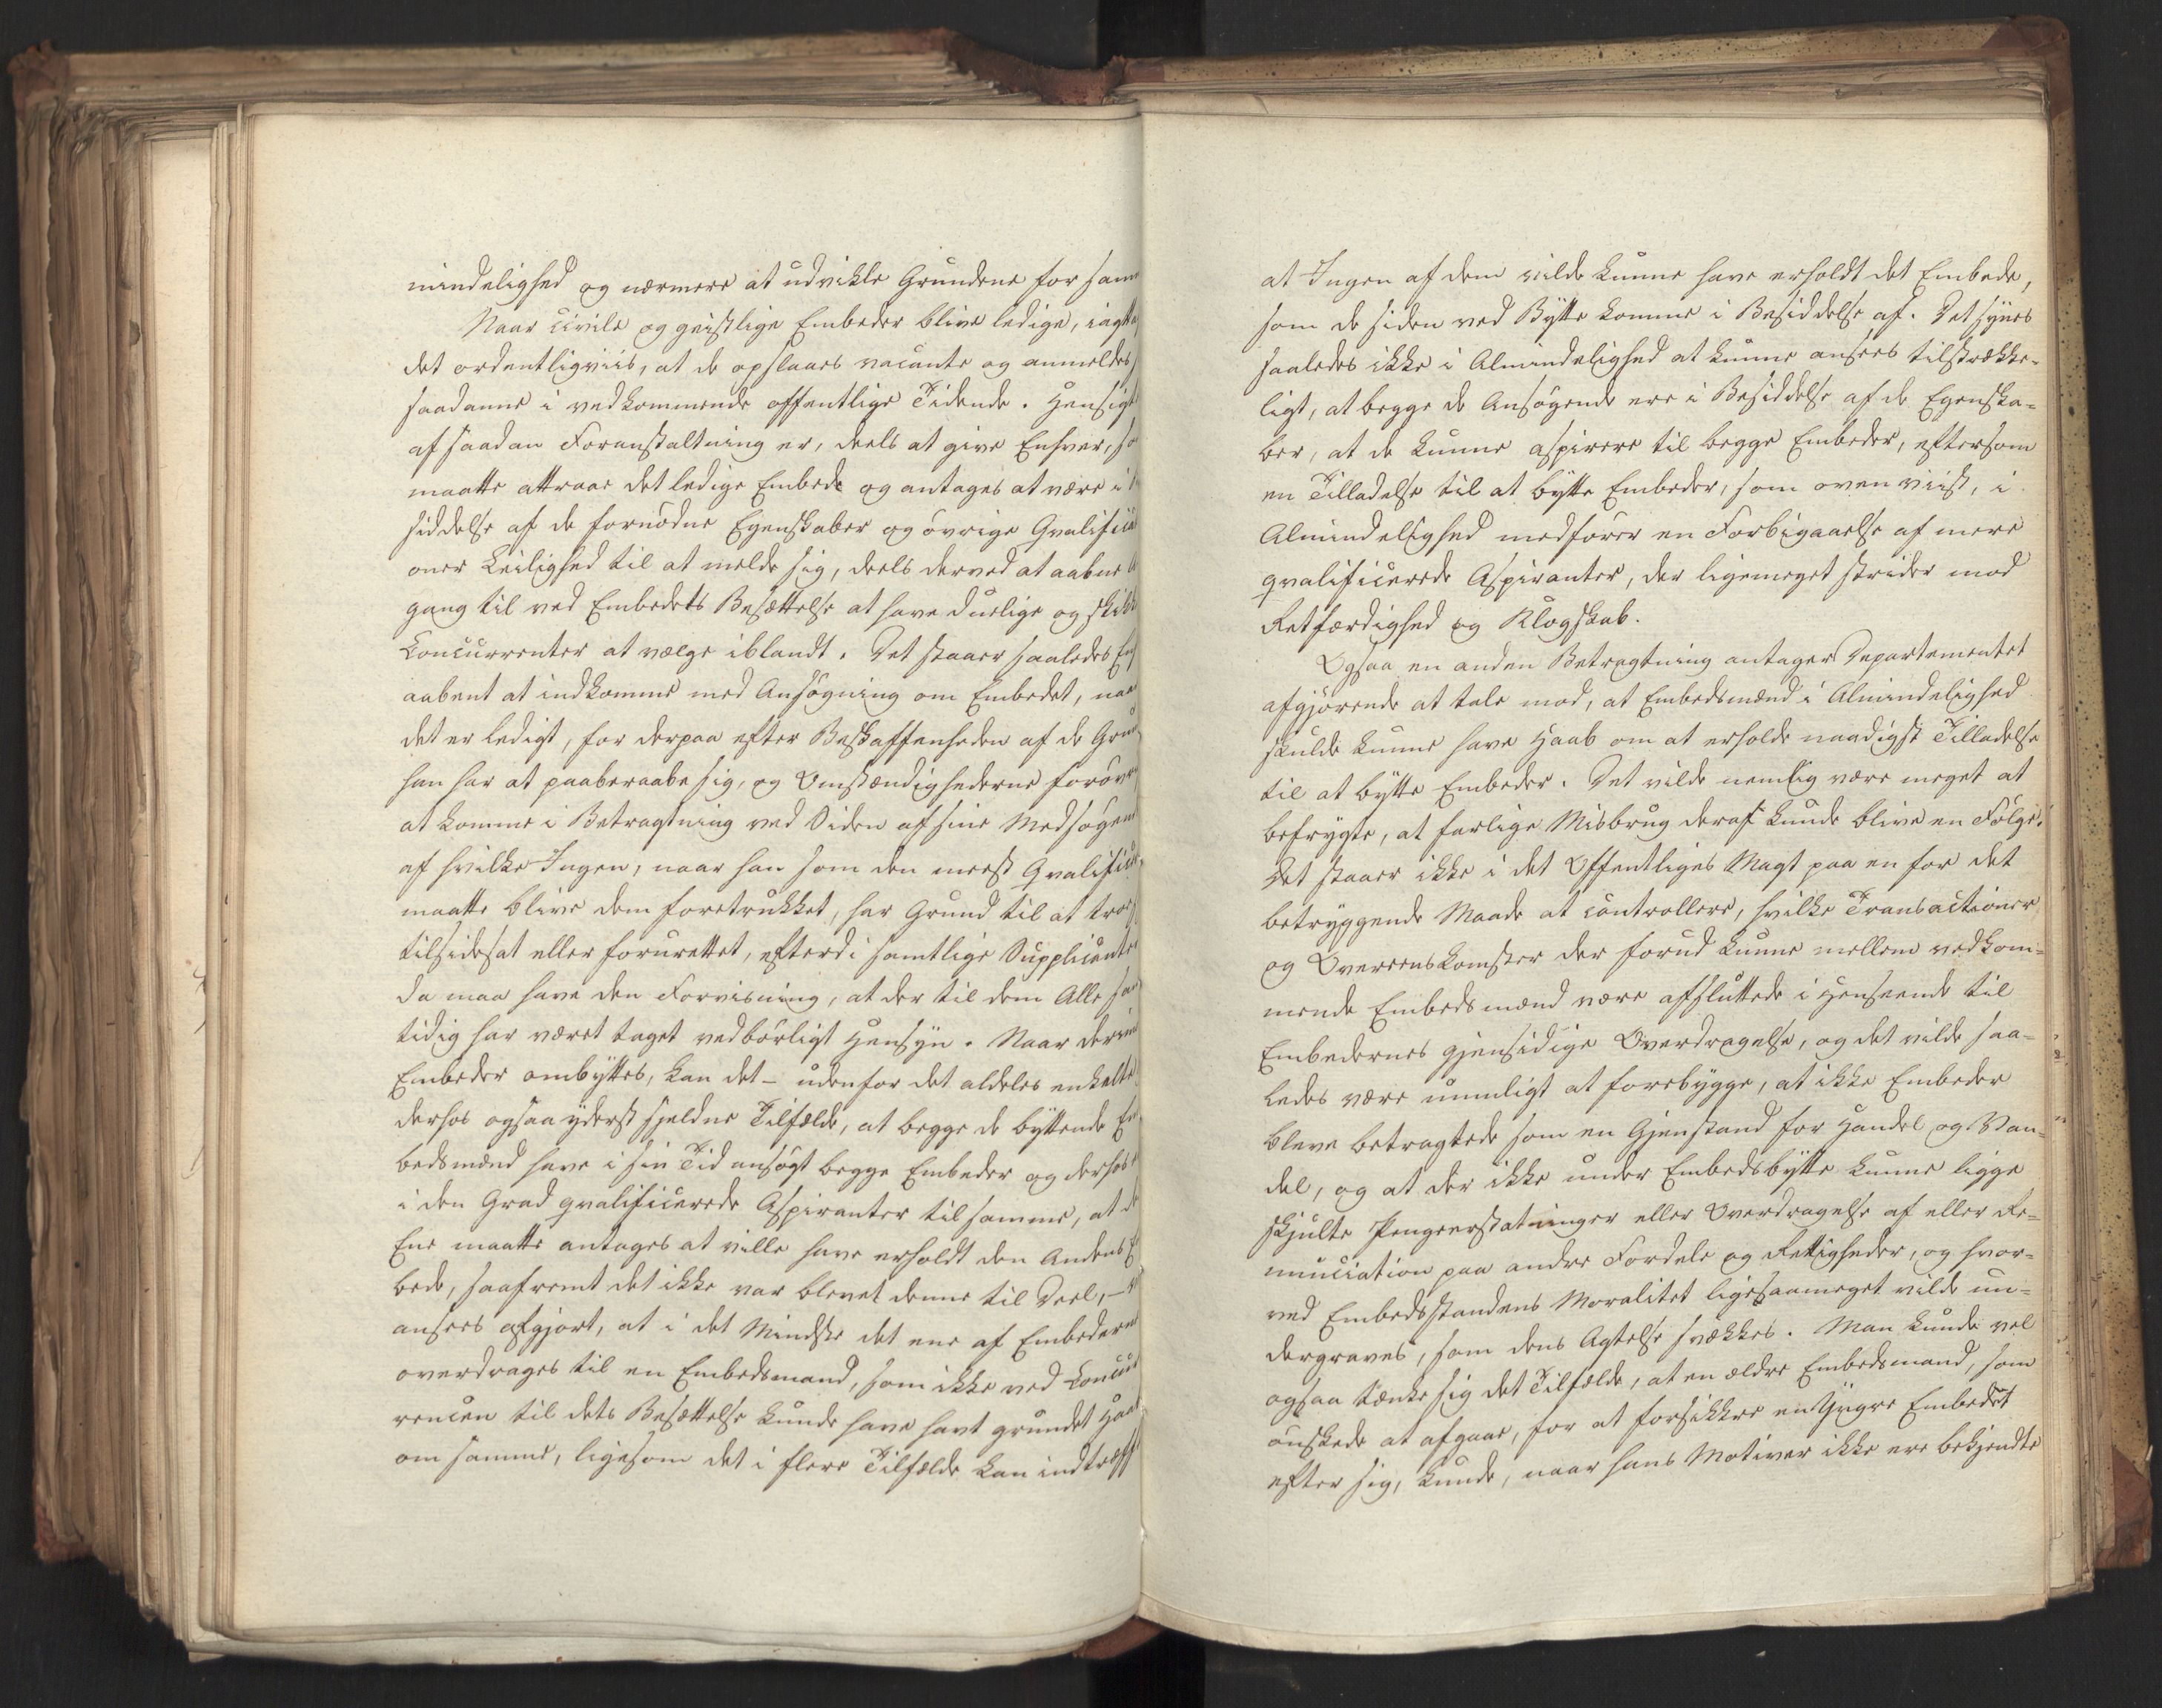 mindelighed og nærmere at udvikle Grundene for samme
Naar civile og geistlige Embeder blive ledige, iagtta
det ordentligviis, at de opslaaes vacante og anmeldes
saadanne i vedkommende offentlige Tidende. Hensigt
af saadan Foranstaltning er, deels at give Enhver, so
maatte attraae det ledige Embede og antages at være i
siddelse af de fornødne Egenskaber og øvrige Qvalificat
oner Leilighed til at melde sig, deels derved at aabne A
gang til ved Embedets Besættelse at have duelige og skikk
Concurrenter at vælge iblandt. Det staaer saaledes Enh
aabent at indkomme med Ansøgning om Embedet, naa
det er ledigt, for derpaa efter Beskaffenheden af de Grun
han har at paaberaabe sig, og Omstændighederne forøvr
at komme i Betragtning ved Siden af sine Medsøgend
af hvilke Ingen, naar han som den meest Qvalifice
maatte blive dem foretrukket, har Grund til at troe
tilsidesat eller forurettet, efterdi samtlige Supplicante
da maa have den Forvisning, at der til dem Alle sa
tidig har været taget vedbørligt Hensyn. Naar derim
Embeder ombyttes, kan det – udenfor det aldeles enkelte
derhos ogsaa yderst sjeldne Tilfælde, at begge de byttende Em
bedsmænd have i sin Tid ansøgt begge Embeder og derhos
i den Grad qvalificerede Aspiranter til samme, at d
Ene maatte antages at ville have erholdt den Andens E
bede, saafremt det ikke var blevet denne til Deel, –
ansees afgjort, at i det Mindste det ene af Embedern
overdrages til en Embedsmand, som ikke ved Concur
rencen til dets Besættelse kunde have havt grundet Haab
om samme, ligesom det i flere Tilfælde kan indtræff
at Ingen af dem vilde kunne have erholdt det Embede,
som de siden ved Bytte komme i Besiddelse af. Det synes
saaledes ikke i Almindelighed at kunne ansees tilstrække=
ligt, at begge de Ansøgende ere i Besiddelse af de Egenska=
ber, at de kunne aspirere til begge Embeder, eftersom
en Tilladelse til at bytte Embeder, som oven viist, i
Almindelighed medfører en Forbigaaelse af mere
qvalificerede Aspiranter, der ligemeget strider mod
Retfærdighed og Klogskab.
Ogsaa en anden Betragtning antager Departementet
afgjørende at tale mod, at Embedsmænd i Almindelighed
skulde kunne have Haab om at erholde naadigst Tilladelse
til at bytte Embeder. Det vilde nemlig være meget at
befrygte, at farlige Misbrug deraf kunde blive en Følge.
Det staaer ikke i det Offentliges Magt paa en for det
betryggende Maade at controllere, hvilke Transactioner
og Overeenskomster der forud kunne mellem vedkom=
mende Embedsmænd være afsluttede i Henseende til
Embedernes gjensidige Overdragelse, og det vilde saa=
ledes være umuligt at forebygge, at ikke Embeder
bleve betragtede som en Gjenstand for Handel og Van=
del, og at der ikke under Embedsbytte kunne ligge
skjulte Pengeerstatninger eller Overdragelse af eller Re=
nunciation paa andre Fordele og Rettigheder, og hvor=
ved Embedsstandens Moralitet ligesaameget vilde un=
dergraves, som dens Agtelse svækkes. Man kunde vel
ogsaa tænke sig det Tilfælde, at en ældre Embedsmand, som
ønskede at afgaae, for at forsikkre en Yngre Embedet
efter sig, kunde, naar hans Motiver ikke ere bekjendte